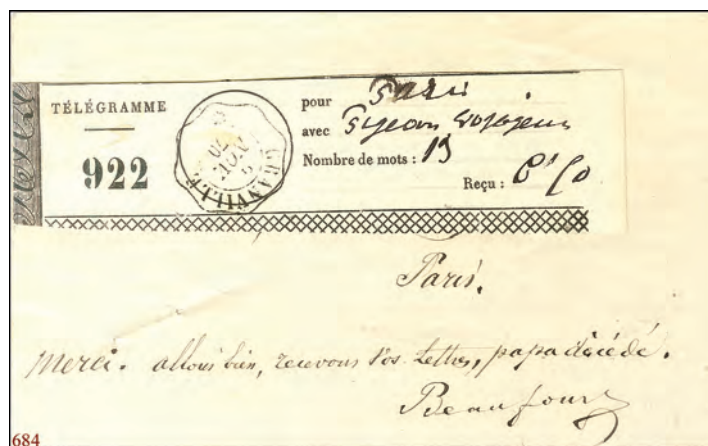 TÉLÉGRAMME
922
GRANVILLE
NOV
70
pour Paris
avec Pigeon Voyageur
Nombre de mots : 13
Reçu :
Paris.
Merci. allons bien, recevons vos Lettres, papa décédé.
Beaufour
684